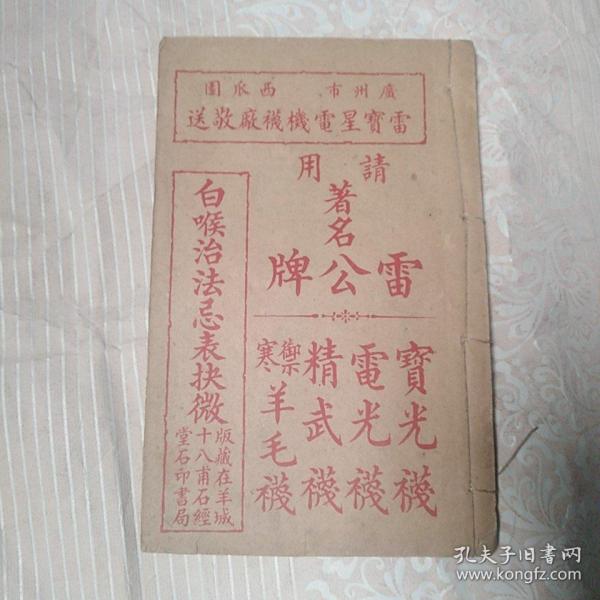 廣州市 西瓜園
雷寶星電機襪廠敬送
請用
著名
雷公牌
寶光襪
電光襪
精武襪
禦寒羊毛襪
白喉治法忌表抉微
版藏在羊城
十八甫石經
堂石印書局
孔夫子旧书网
www.kongfz.com